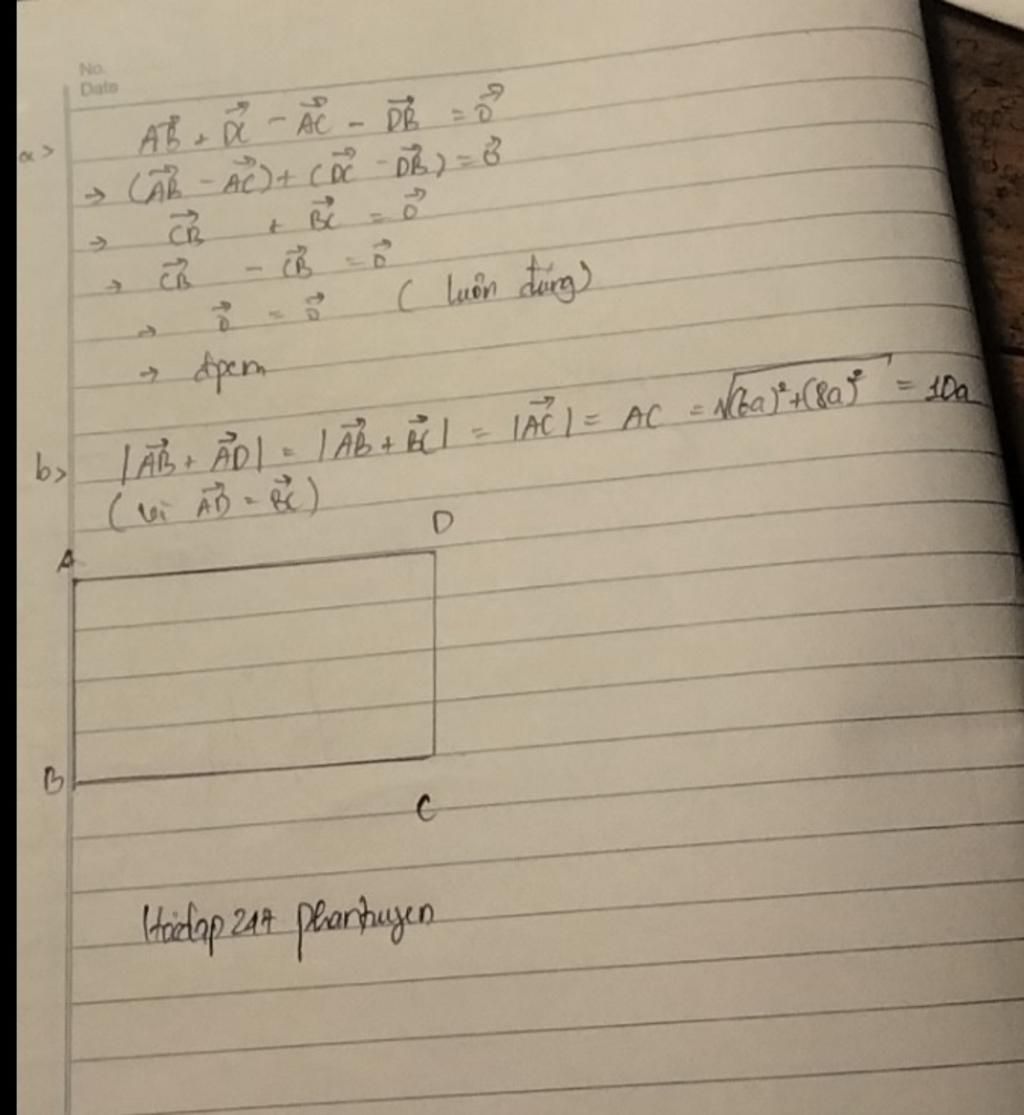 No.
Date
a> $\vec{AB} + \vec{DC} - \vec{AC} - \vec{DB} = \vec{0}$
→ $(\vec{AB} - \vec{AC}) + (\vec{DC} - \vec{DB}) = \vec{0}$
→ $\vec{CB} + \vec{BC} = \vec{0}$
→ $\vec{CB} - \vec{CB} = \vec{0}$
→ $\vec{0} = \vec{0}$ (luôn đúng)
→ đpcm
b> $|\vec{AB} + \vec{AD}| = |\vec{AB} + \vec{BC}| = |\vec{AC}| = AC = \sqrt{(6a)^2 + (8a)^2} = 10a$
(vì $\vec{AD} = \vec{BC}$)
A D
B C
Hoidap247 phanhuyen